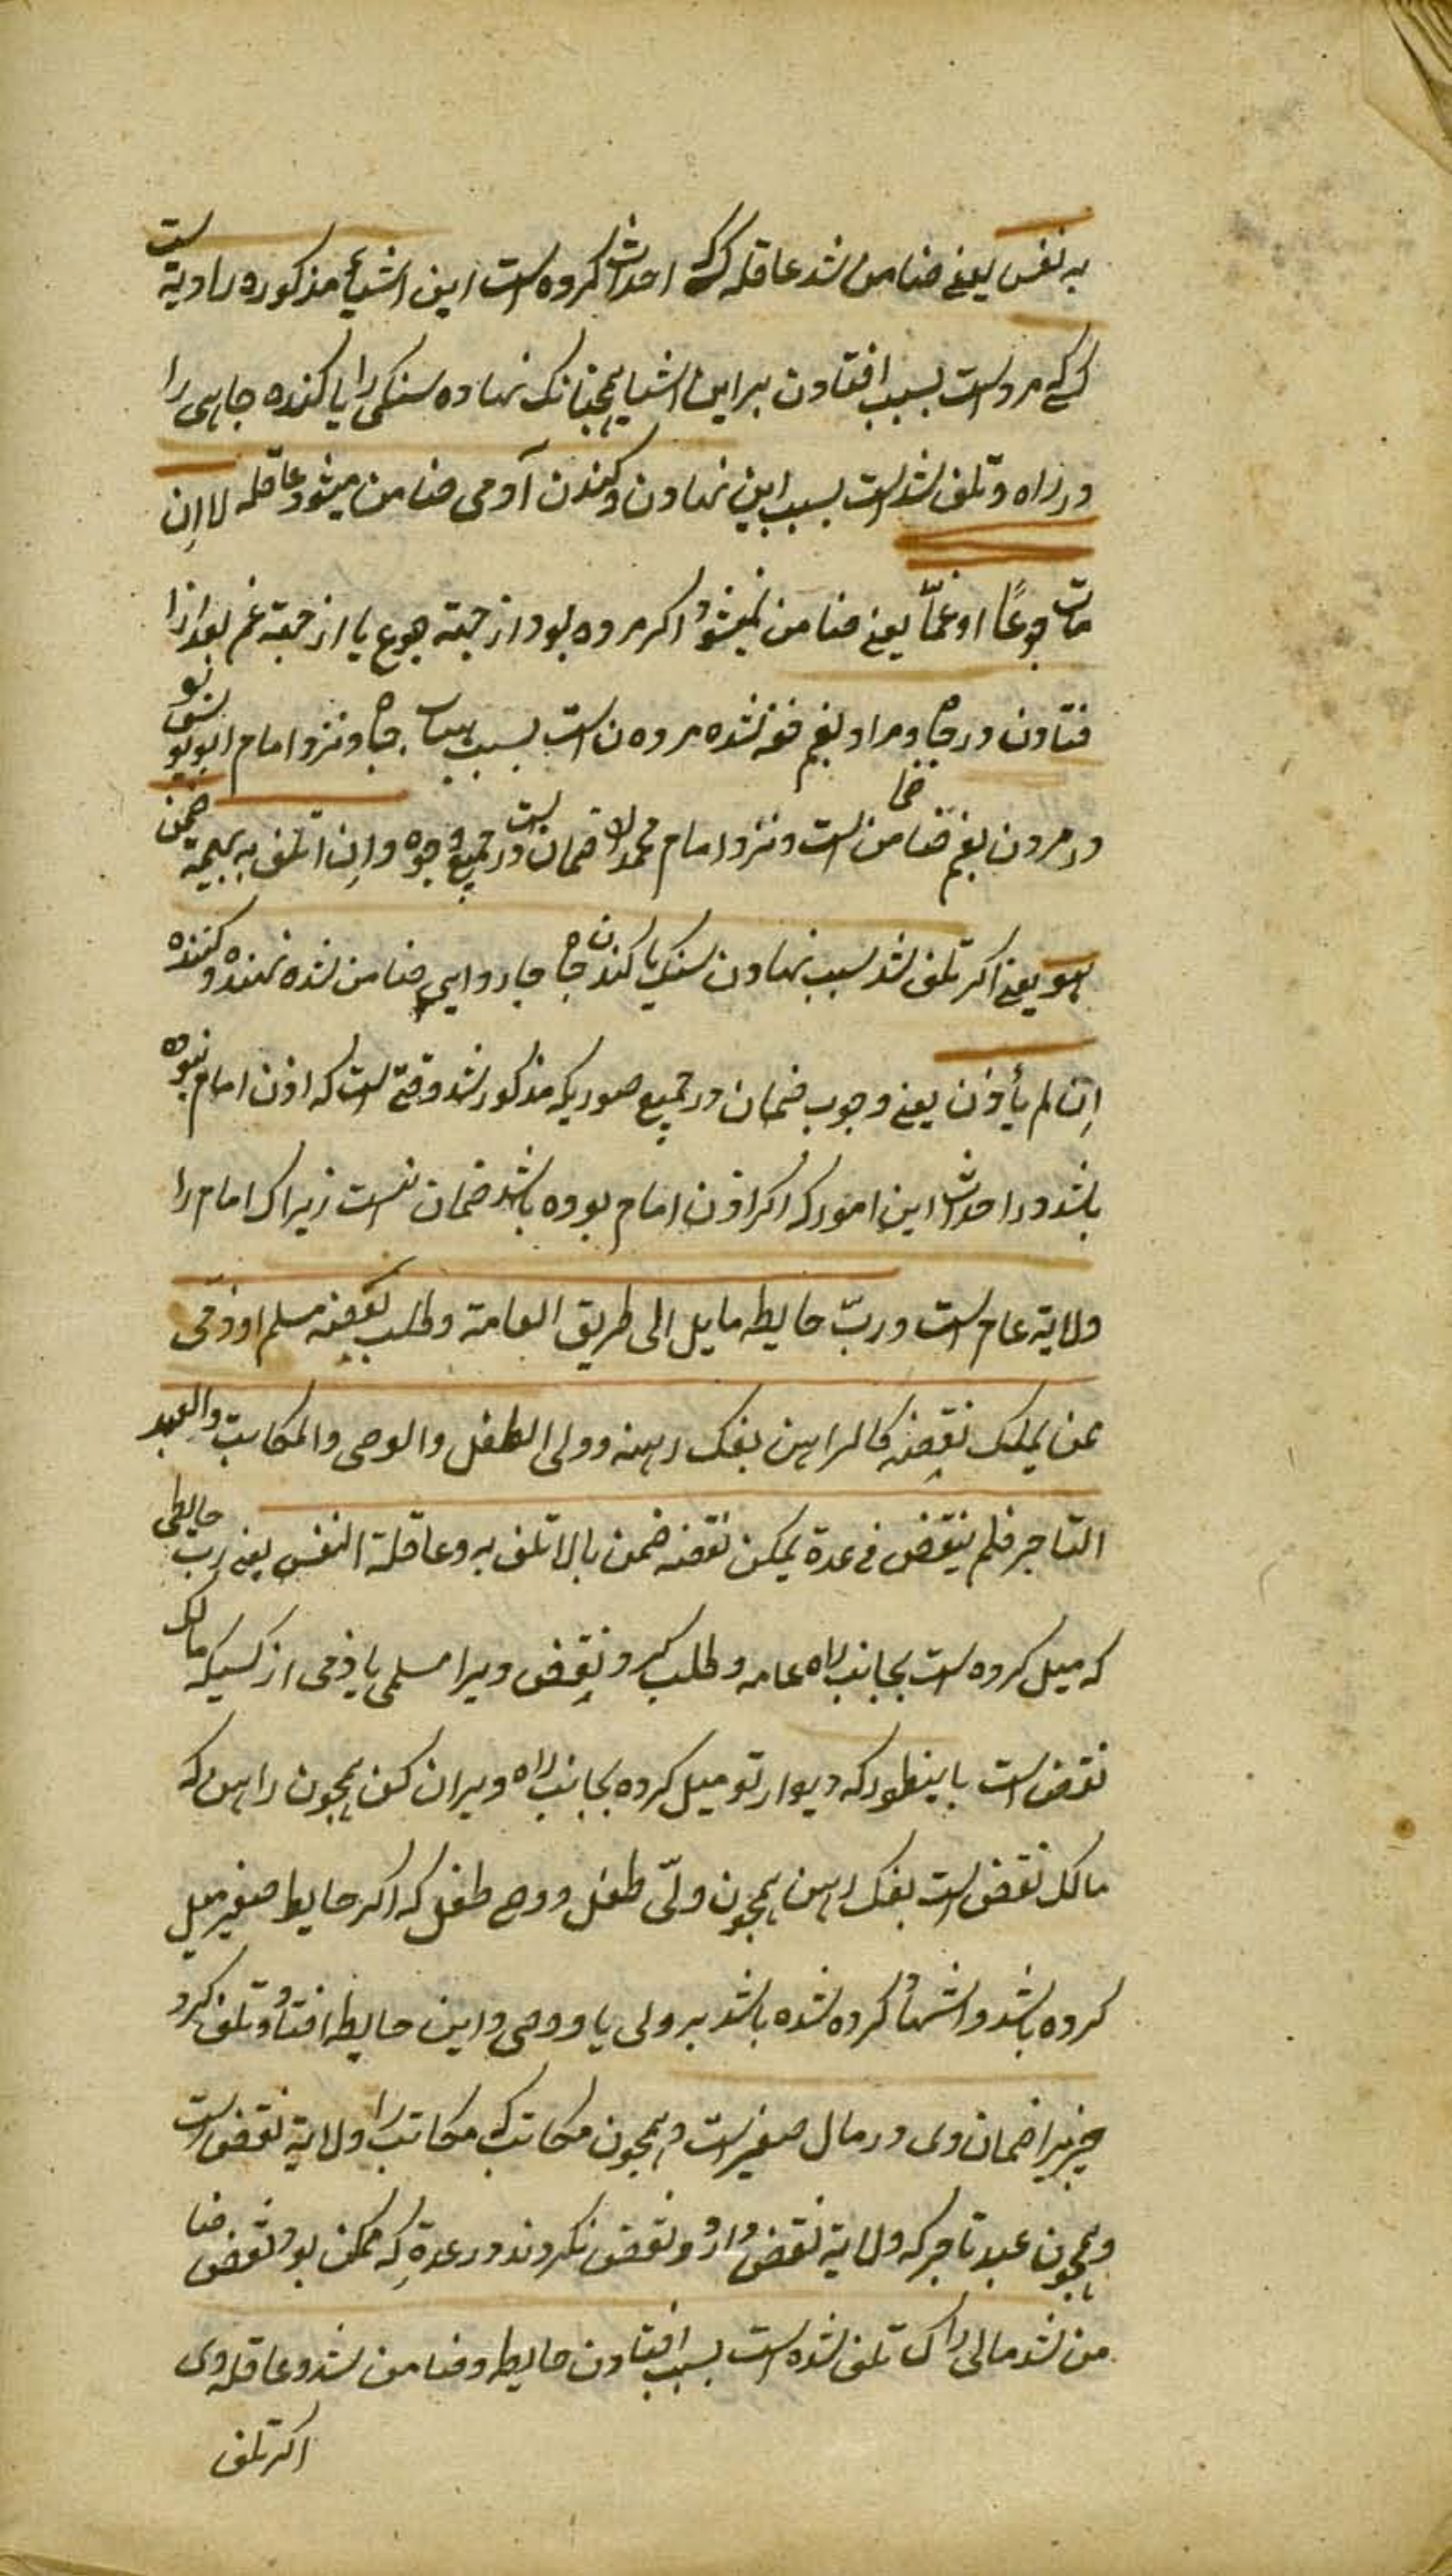 به نفس یعنی ضامن شد عاقله کسی که احداث کرده است این اشیاء مذکوره را دیة است
کسی که مرد است بسبب افتادن بر این اشیا همچنانکه نهاده سنکی را یا کنده چاهی را
در راه و تلف شد است بسبب این نهادن و کندن آدمی ضامن میشود عاقله لا اِن
مات جوعًا او غمّا یعنی ضامن نمیشود اکر مرده بود از جهة جوع یا از جهة غم بعد از
فتادن در چاه و مراد بغم خفه شده مردن است بسبب چاه و نزد امام ابو یوسف
در مردن بغم ضامن است و نزد امام محمد ضمان است در جمیع وجوه و اِن اتلف به بهیمة ضمن
هو یعنی اکر تلف شد بسبب نهادن سنک یا کندن چاه چاروایی ضامن شده نهنده و کننده
اِن لم یأذن یعنی وجوب ضمان در جمیع صوریکه مذکور شد وقتی است که اذن امام نبوده
باشد در احداث این امور که اکر اذن امام بوده باشد ضمان نیست زیراک امام را
ولایة عام است و ربّ حایط مایل الی طریق العامة و طلب نقضه مسلم او ذمی
ممن یملک نقضه کالراهن بفک رهنه و ولی الطفل والوصی والمکاتب والعبد
التاجر فلم ینقض فی مدة یمکن نقضه ضمن مالا تلف به و عاقلة النفس یعنی رب حایطی
که میل کرده است بجانب راه عامه و طلب کرد نقض ویرا مسلمی یا ذمی از کسیکه مالک
نقض است باینطور که دیوار تو میل کرده بجانب راه ویران کن همچون راهن که
مالک نقض است بفک رهن همچون ولیّ طفل و وصی طفل که اکر حایط صغیر میل
کرده باشد و اشهاد کرده شده باشد بر ولی یا وصی و این حایط افتاد و تلف کرد
چیزیرا ضمان وی در مال صغیر است و همچون مکاتب که مکاتب را ولایة نقض است
و همچون عبد تاجر که ولایة نقض دارد و نقض نکردند در مدة که ممکن بود نقض ضا
من شد مالی را که تلف شده است بسبب افتادن حایط و ضامن شد و عاقله وی
اکر تلف